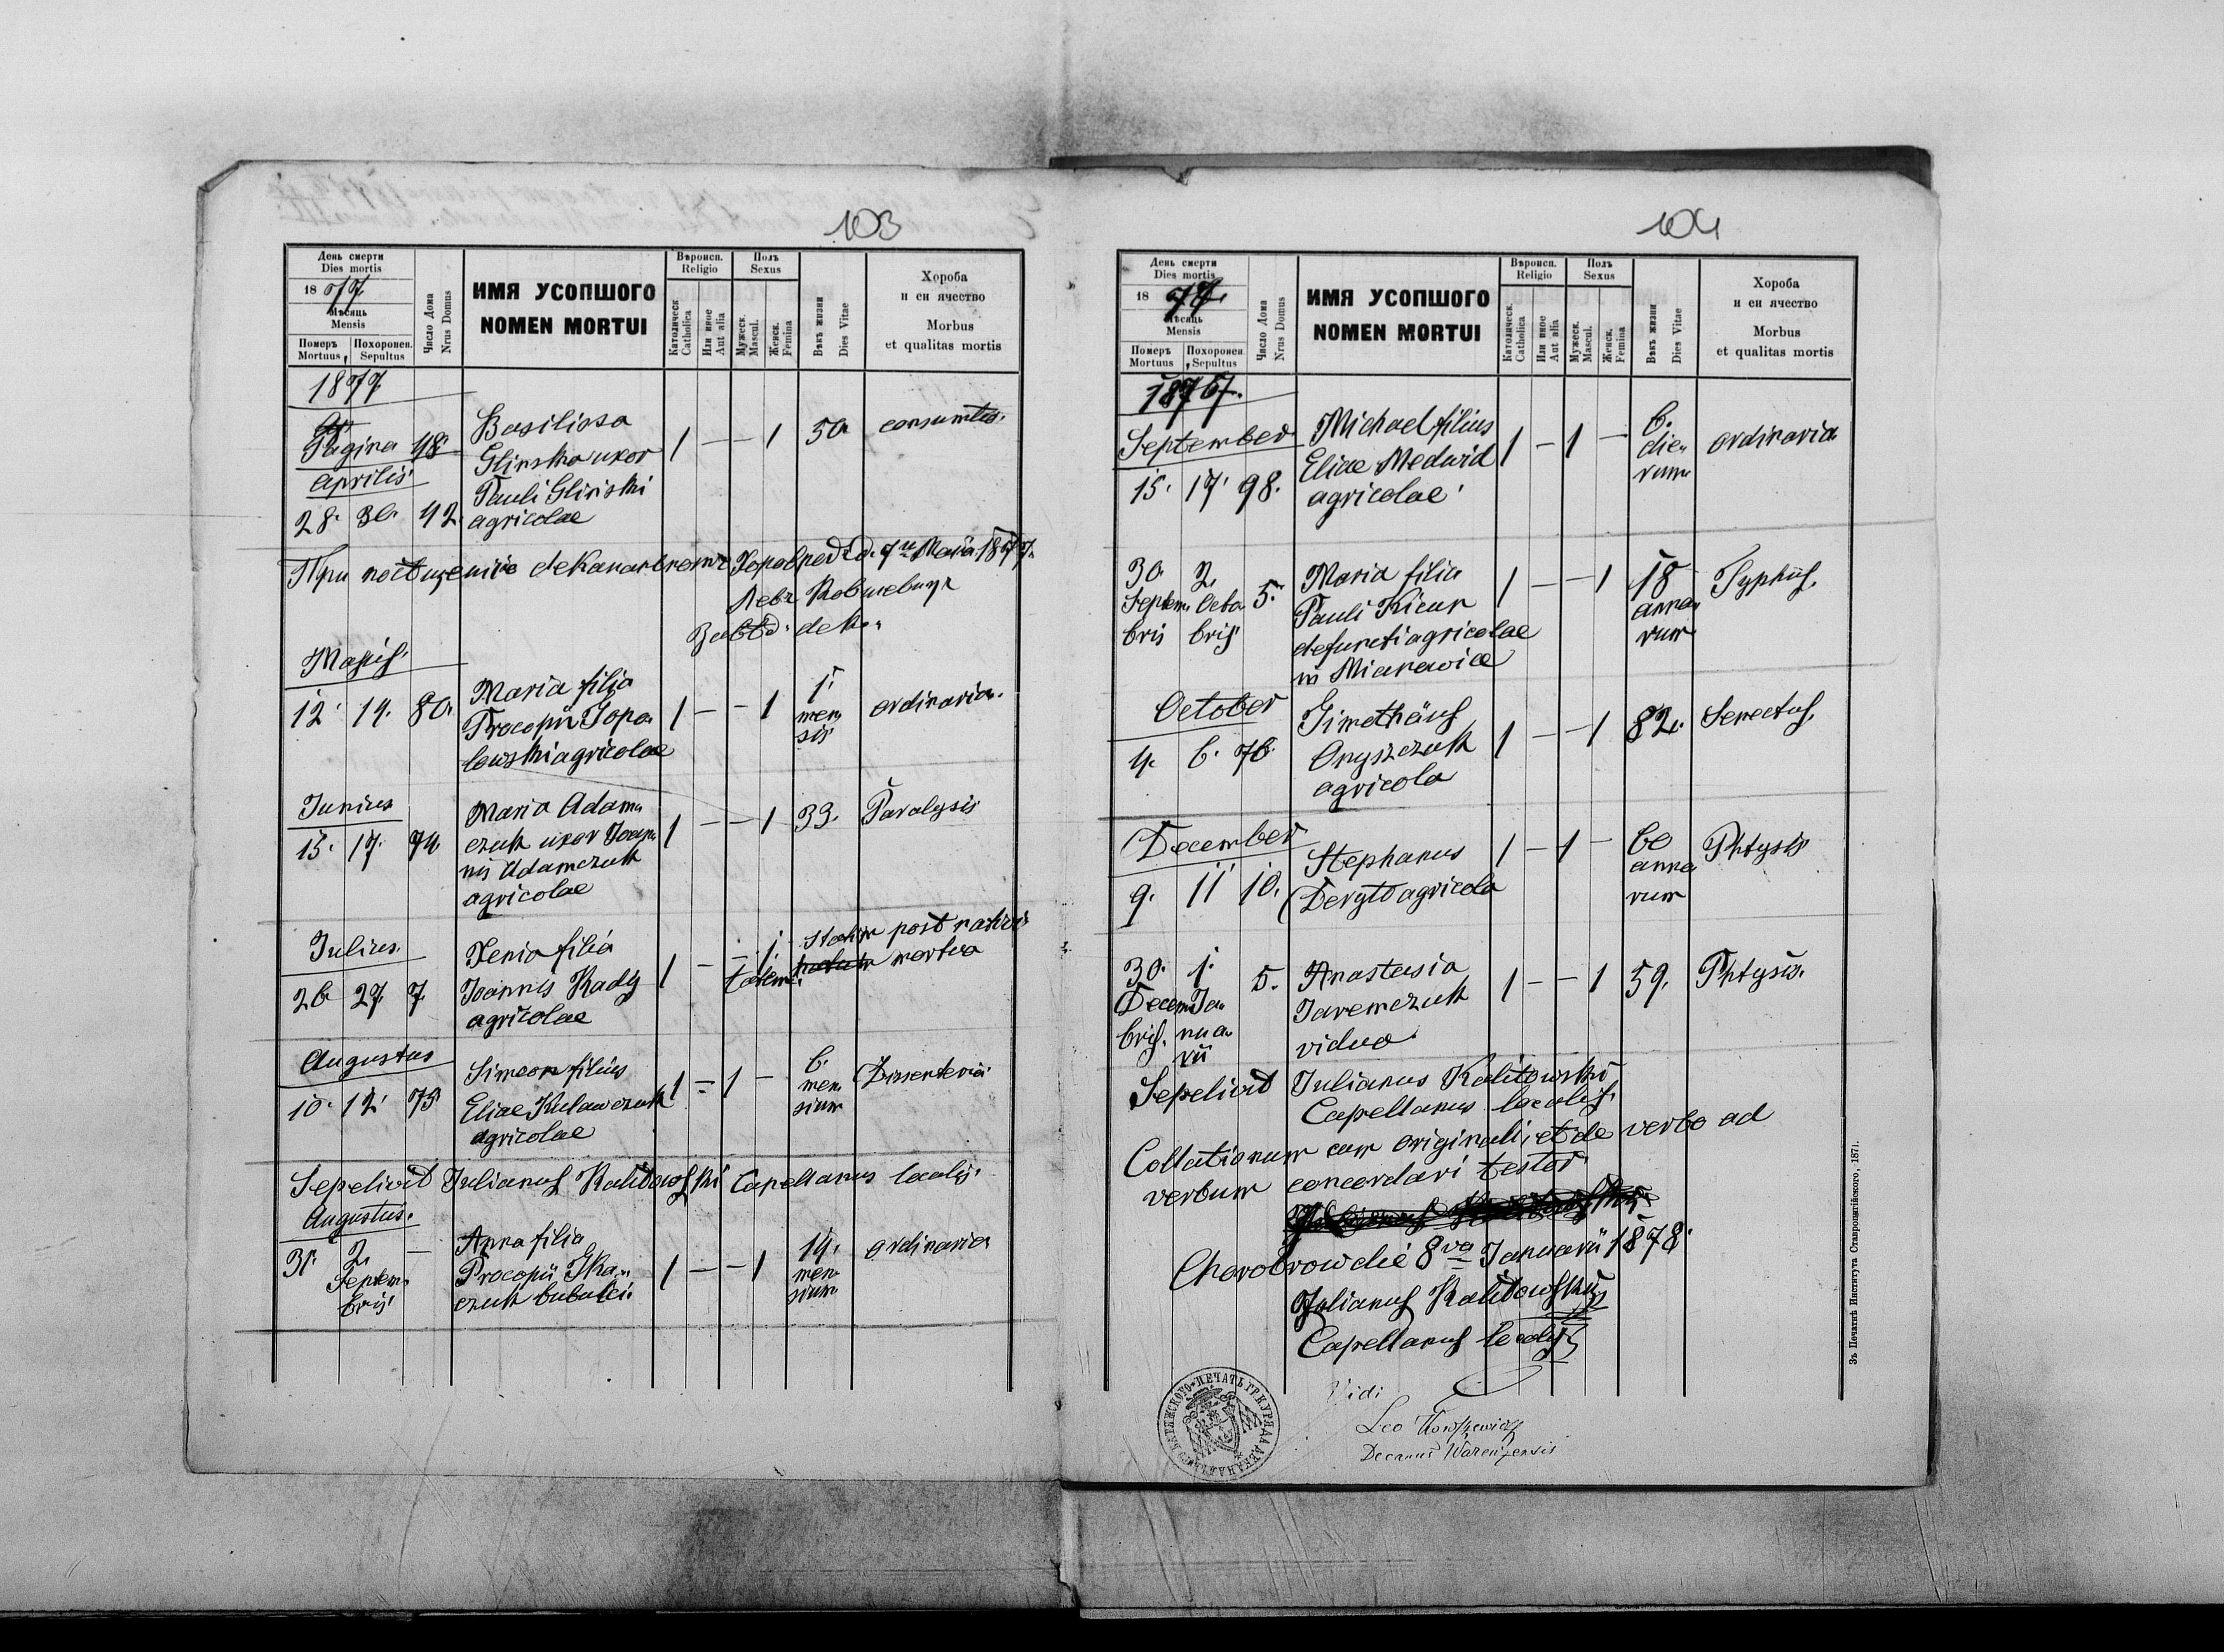 103
День смерти
Dies mortis
1877.
Мѣсяць
Mensis
Померъ Mortuus
Похоронен. Sepultus
Число Дома
Nrus Domus
ИМЯ УСОПШОГО
NOMEN MORTUI
Вѣроисп.
Religio
Католическ.
Catholica
Или иное
Aut alia
Полъ
Sexus
Мужеск.
Mascul.
Женск.
Femina
Вѣкъ жизни
Dies Vitae
Хороба
и еи ячество
Morbus
et qualitas mortis
1877
Pagina 48.
Aprilis
28. 30. 42. Basilissa
Glinska uxor
Pauli Glinski
agricolae
1 — — 1 50. consumtio.
При 1877.
Левъ
Majus.
12. 14. 80. Maria filia
Procopii Topo-
lowski agricolae
1 — — 1 1. men-
sis
ordinaria.
Junius
15. 17. 74. Maria Adam-
czuk uxor Joan-
nis Adamczuk
agricolae
1 — — 1 33. Paralysis
Julius.
26. 27. 7. Xenia filia
Joannis Kady
agricolae
1 — — 1. statim post nativi-
tatem mortua
Augustus
10. 12. 75. Simeon filius
Eliae Kulawczuk
agricolae
1 — 1 — 6.
men-
sium
Dissenteria
Sepelivit Julianus Kalitowski Capellanus localis.
Augustus.
31. 2.
Septem-
bris
— Anna filia
Procopii Tka-
czuk bubulci.
1 — — 1 14.
men-
sium
ordinaria
104
День смерти
Dies mortis
1877.
Мѣсяць
Mensis
Померъ Mortuus
Похоронен. Sepultus
Число Дома
Nrus Domus
ИМЯ УСОПШОГО
NOMEN MORTUI
Вѣроисп.
Religio
Католическ.
Catholica
Или иное
Aut alia
Полъ
Sexus
Мужеск.
Mascul.
Женск.
Femina
Вѣкъ жизни
Dies Vitae
Хороба
и еи ячество
Morbus
et qualitas mortis
September
15. 17. 98. Michael filius
Eliae Medwid
agricolae
1 — 1 — 6.
die-
rum
ordinaria
30. Septem-
bris
2. Octo-
bris
5. Maria filia
Pauli Kicun
defuncti agricolae
in
1 — — 1 18
anno-
rum
Typhus.
October
4. 6. 76. Timothäus
Onyszczuk
agricola
1 — — 1 82. Senectus.
December
9. 11 10. Stephanus
Deryto agricola
1 — 1 — 60
anno-
rum
Phtysis
30.
Decem-
bris.
1.
Ja-
nua-
rii
5. Anastasia
Jaremczuk
vidua
1 — — 1 59. Phtysis.
Sepelivit Julianus Kalitowski
Capellanus localis.
Collationum cum originali, et de verbo ad
verbum concordari testor.
Chorobrow die 8va Januarii 1878.
Julianus Kalitowski
Capellanus localis
Vidi
Leo
Decanus Warenzensis
Зъ Печатнѣ Института Ставропигійского, 1871.